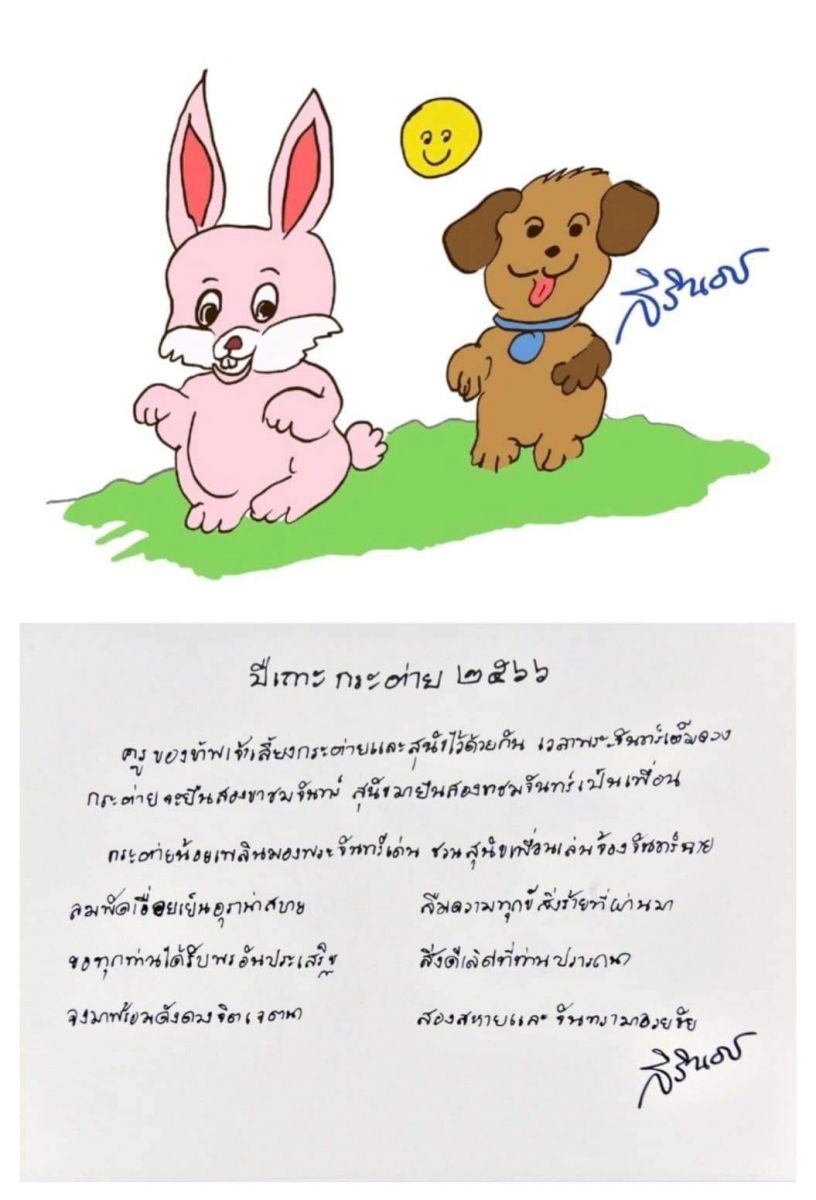 สิรินธร
ปีเถาะ กระต่าย ๒๕๖๖
ครูของข้าพเจ้าเลี้ยงกระต่ายและสุนัขไว้ด้วยกัน เวลาพระจันทร์เต็มดวง
กระต่ายจะยืนสองขาชมจันทร์ สุนัขมายืนสองขาชมจันทร์เป็นเพื่อน
กระต่ายน้อยเพลินมองพระจันทร์เด่น ชวนสุนัขเพื่อนเล่นจ้องจันทร์ฉาย
ลมพัดเรื่อยเย็นอุราน่าสบาย ลืมความทุกข์สิ่งร้ายที่ผ่านมา
ขอทุกท่านได้รับพรอันประเสริฐ สิ่งดีเลิศที่ท่านปรารถนา
จงมาพร้อมดังดวงจิตเจตนา สองสหายและจันทรามาอวยชัย
สิรินธร